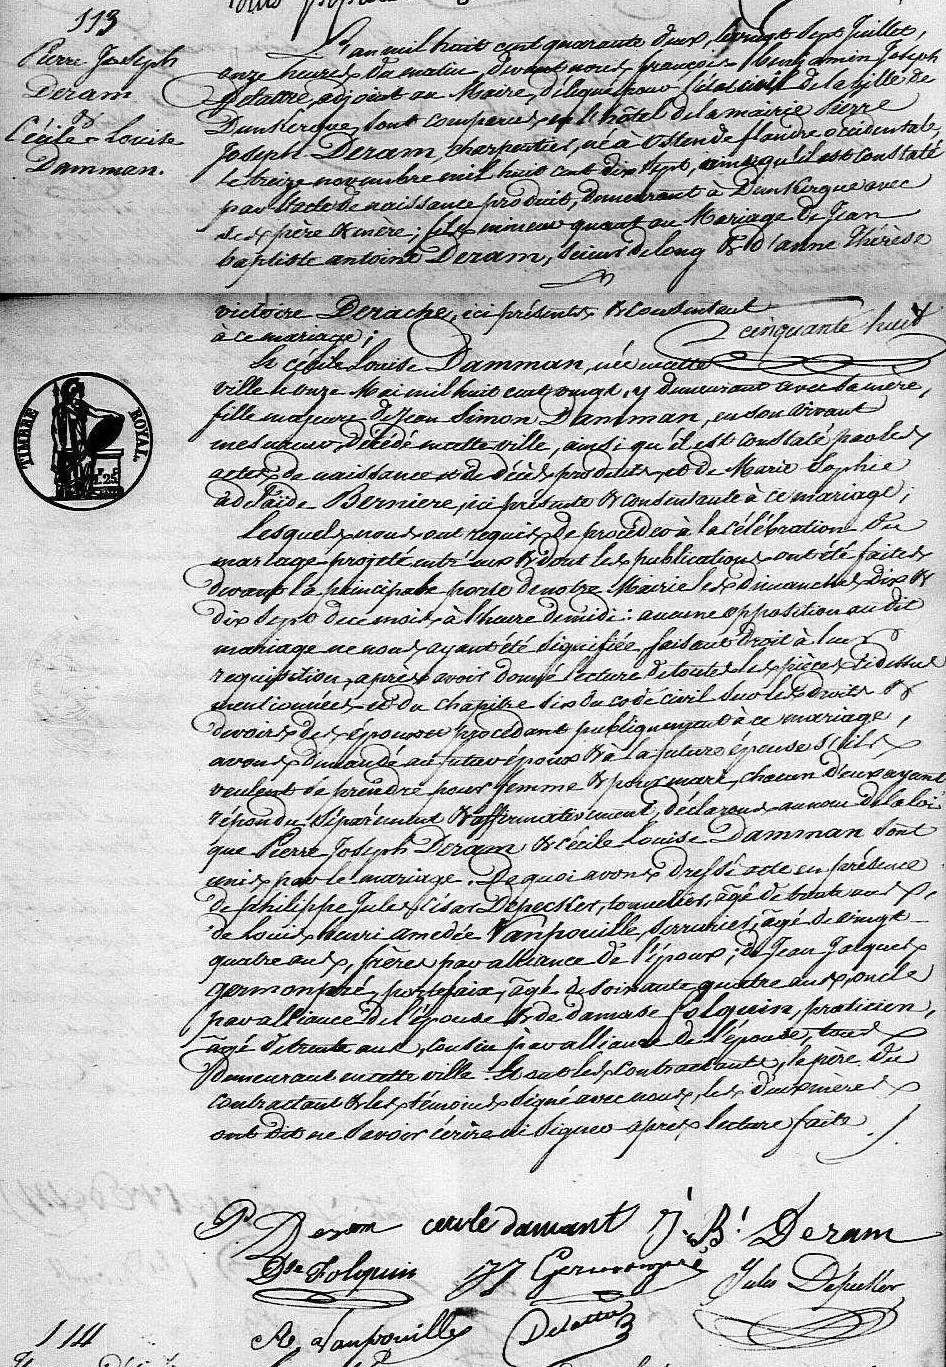 113
Pierre Joseph
Deram
&
Cécile Louise
Damman.
L'an mil huit cent quarante deux, le vingt sept Juillet,
onze heures du matin, devant nous françois Benjamin Joseph
Delattre, adjoint au Maire, délégué pour l'état civil de la ville de
Dunkerque, sont comparus en l'hôtel de la mairie Pierre
Joseph Deram, charpentier, né à Ostende flandre occidentale,
le treize novembre mil huit cent dix sept, ainsi qu'il est constaté
par l'acte de naissance produit, demeurant à Dunkerque avec
ses père & mère; fils mineur quant au Mariage de Jean
baptiste antoine Deram, scieur de long & d'anne Thérèse
victoire Derache, ici présents & consentant
à ce mariage;
cinquante huit
Et Cécile Louise Damman, née en cette
ville le onze Mai mil huit cent vingt, y demeurant avec sa mère,
fille majeure de Jean Simon Damman, en son vivant
mesureur, décédé en cette ville, ainsi qu'il est constaté par les
actes de naissance & de décès produits, et de Marie Sophie
adélaïde Berniere, ici présente & consentante à ce mariage;
Lesquels nous ont requis de procéder à la célébration du
mariage projeté entr'eux & dont les publications ont été faites
devant la principale porte de notre Mairie les dimanches dix &
dix sept de ce mois à l'heure de midi: aucune opposition au dit
mariage ne nous ayant été signifiée, faisant droit à leur
requisition, après avoir donné lecture de toutes les pièces ci dessus
mentionnées et du chapitre six du code civil sur les droits &
devoirs des époux et procédant publiquement à ce mariage,
avons demandé au futur époux & à la future épouse s'ils
veulent se prendre pour femme & pour mari, chacun d'eux ayant
répondu séparément & affirmativement, déclarons au nom de la loi
que Pierre Joseph Deram & Cécile Louise Damman sont
unis par le mariage. De quoi avons dressé acte en présence
de Philippe Jules César Depecker, tonnelier, âgé de trente ans,
de Louis henri amedée Vanpouille, serrurier, âgé de vingt
quatre ans, frères par alliance de l'époux; de Jean Jacques
germonpré, portefaix, âgé de soixante quatre ans, oncle
par alliance de l'épouse & de damase folquin, praticien,
âgé de trente ans, cousin par alliance de l'épouse, tous
demeurant en cette ville. Et ont les contractants, le père du
contractant & les témoins signé avec nous, les deux mères
ont dit ne savoir écrire ni signer après lecture faite
TIMBRE ROYAL
P Deram cecile damant J. B.t Deram
Dse Folquin JJ Germonpré Jules Depecker
Ae Vanpouille Delattre
114